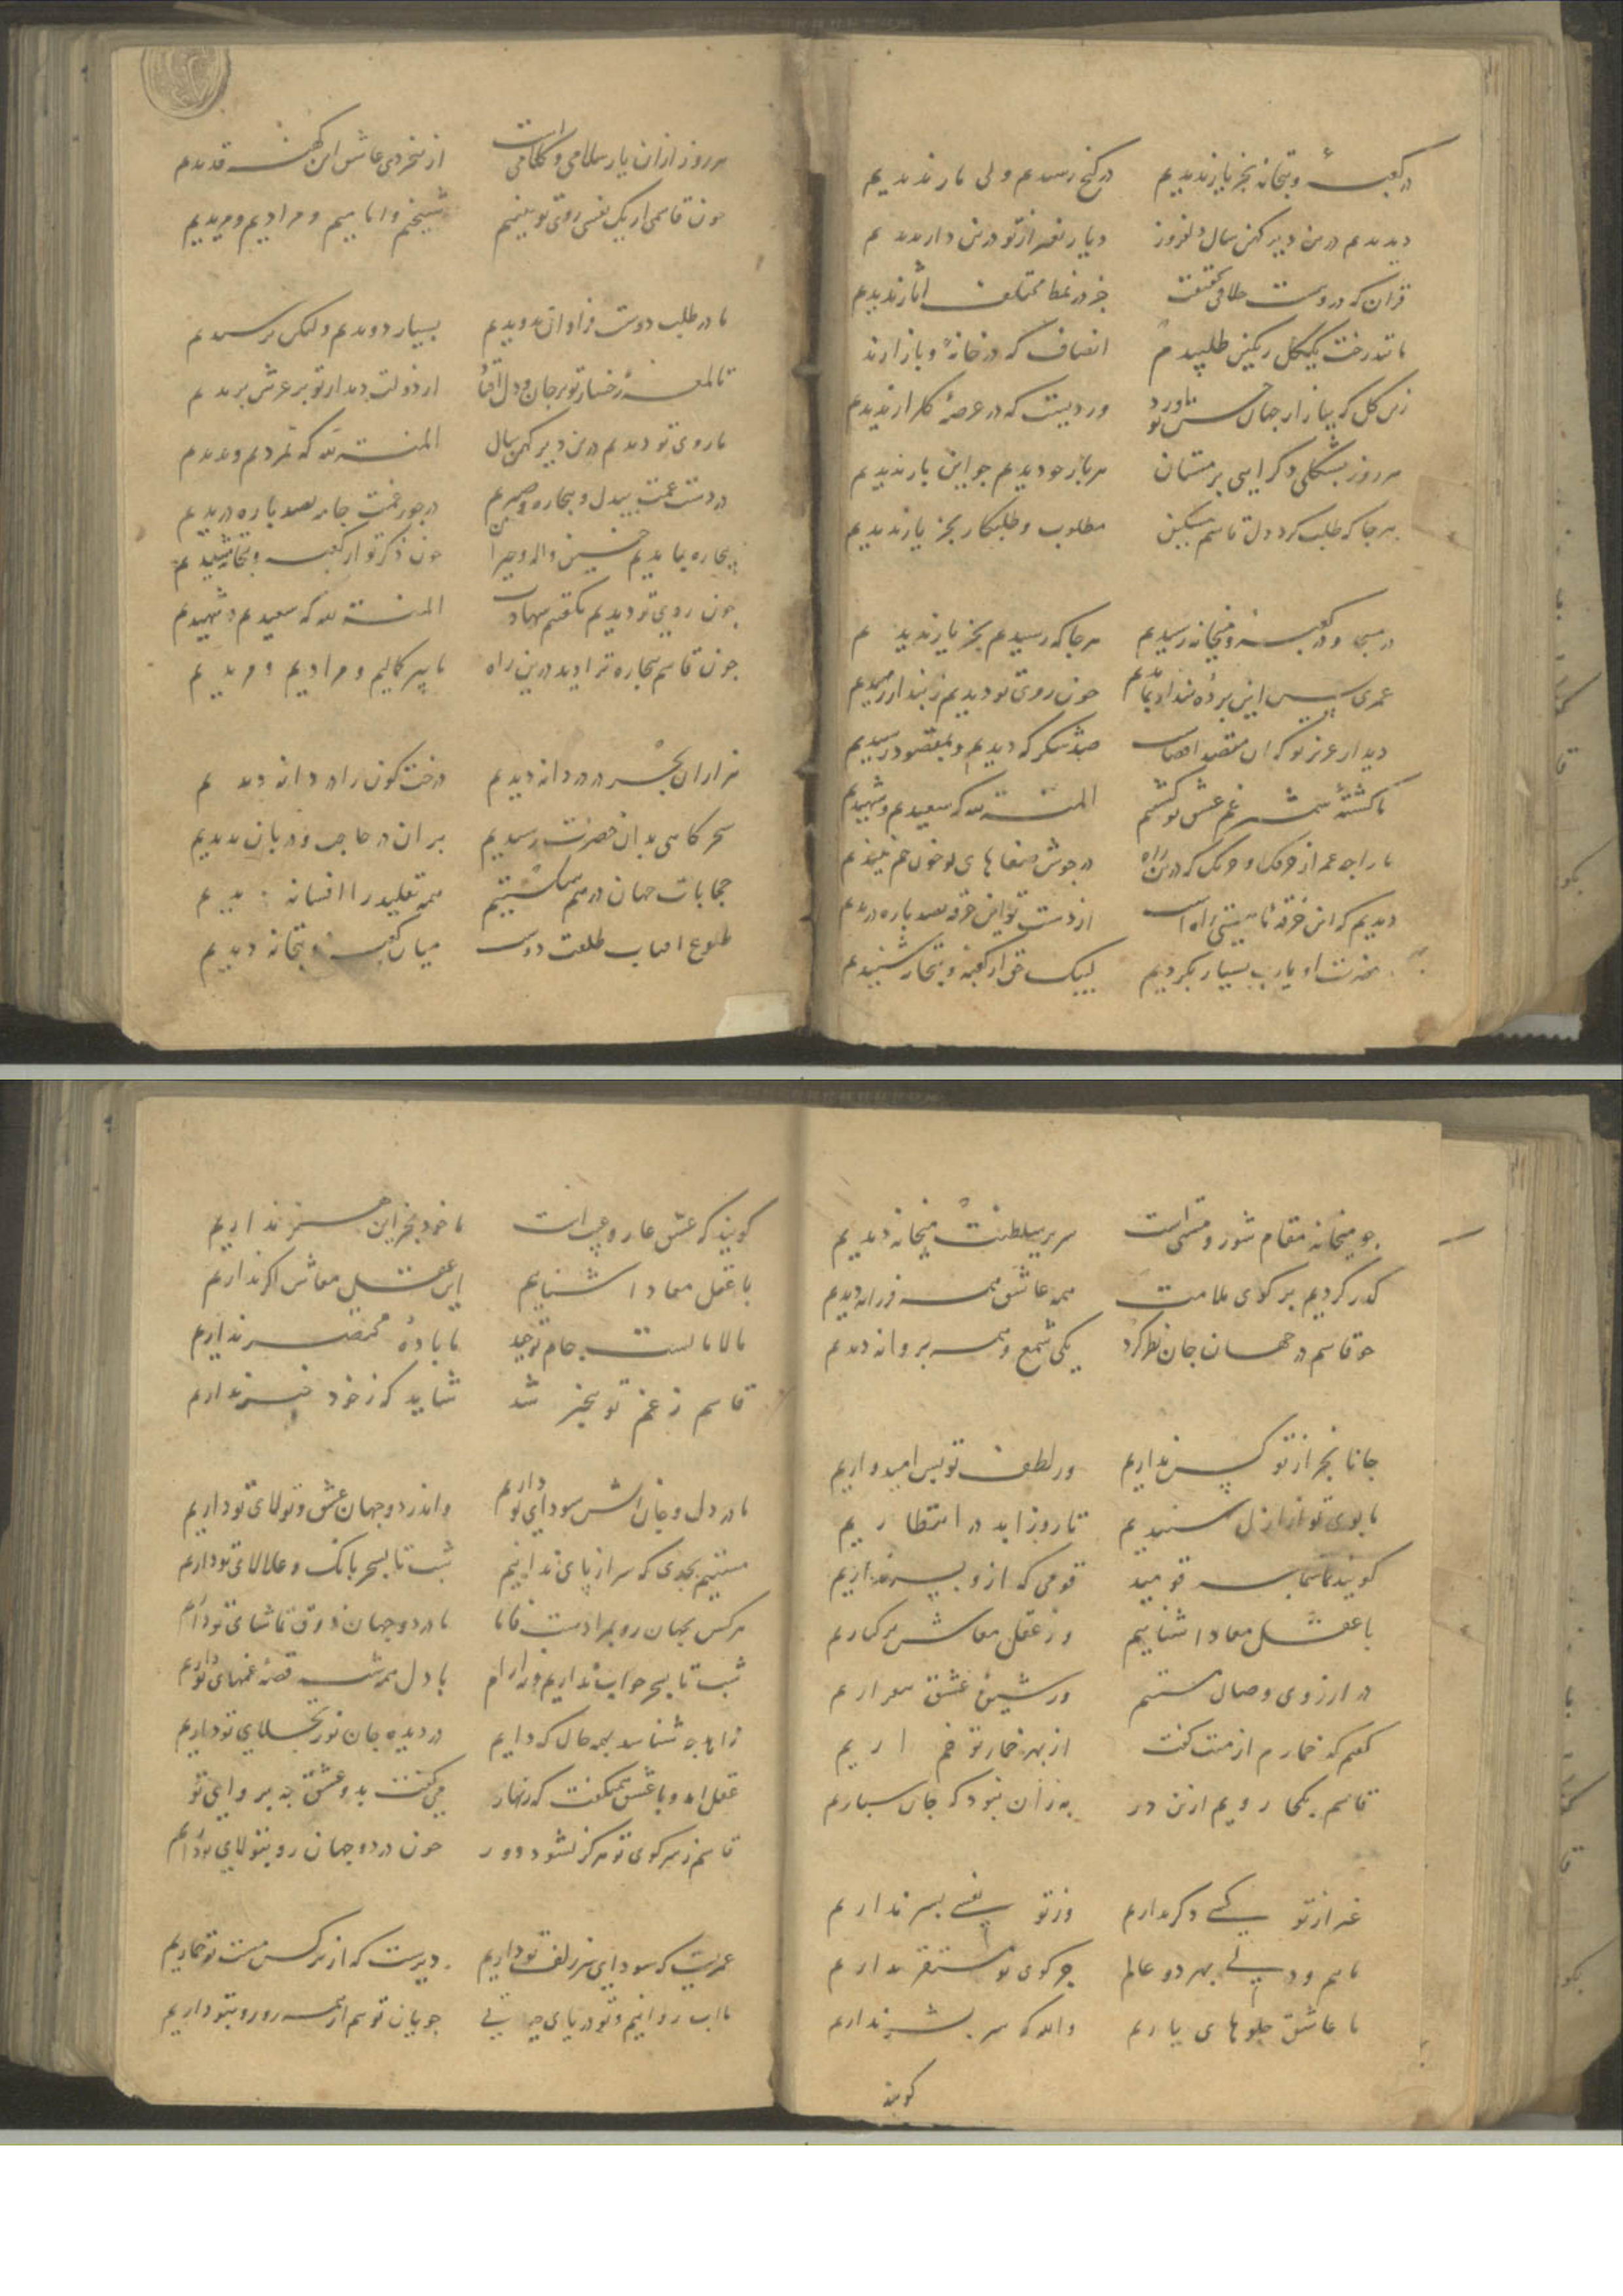 در کعبه و بتخانه بجز یار ندیدیم در کنج رسیدم ولی مار ندیدیم
دیدیم درین دیر کهن سال دلفروز دیار بغیر از تو درین دار ندیدیم
قران که دروست حقیقت جز در نمط مختلف اثار ندیدیم
ما تند رخت یک گل رنگین طلبیدیم انصاف که در خانه و بازار ندیدیم
زین گل که ببازار جهان حسن تو آورد وردیست که در عرصه گلزار ندیدیم
هر روز بشکلی دگر ایی بر مستان هر بار جو دیدیم جو این بار ندیدیم
هر جا که طلب کرد دل قاسم مسکین مطلوب و طلبکار بجز یار ندیدیم
در مسجد و در کعبه و میخانه رسیدیم هر جا که رسیدیم بجز یار ندیدیم
عمری پس این پرده پندار بماندیم جون روی تو دیدیم ز پندار رمیدیم
دیدار عزیز تو که ان مقصد اقصاست صد شکر که دیدیم و بمقصود رسیدیم
ما کشته شمشیر غم عشق تو کشتیم المنة لله که سعیدیم و شهیدیم
ما را جه غم از جنگ که درین راه در جوش صفاهای تو جون خم نبیذیم
دیدیم که این خرقه ما هستی راه است از دست تو این خرقه بصد پاره دریدیم
در حضرت او یارب بسیار بکردیم لبیک حق از کعبه و بتخانه شنیدیم
هر روز ازان یار سلامی و کلامی است از بیخردی عاشق این کهنه قدیدیم
جون قاسمی ار یک نفسی روی تو بینیم شیخیم و امامیم و مرادیم و مریدیم
ما در طلب دوست فراوان بدویدیم بسیار دویدیم ولیکن برسیدیم
تا لمعه رخسار تو بر جان و دل افتاد از دولت دیدار تو بر عرش بریدیم
ما روی تو دیدیم درین دیر کهن سال المنة لله که نمردیم و بدیدیم
در دست غمت بیدل و بیچاره و صبریم در جور غمت جامه بصد پاره دریدیم
بیچاره بماندیم جنین واله و حیران جون ذکر تو از کعبه و بتخانه شنیدیم
جون روی تو دیدیم بکفتیم شهادت المنة لله که سعیدیم و شهیدیم
جون قاسم بیچاره ترا دید درین راه ما پیر کمالیم و مرادیم و مریدیم
هزاران بحر در دردانه دیدیم درخت کون را در دانه دیدیم
سحرکاهی بدان حضرت رسیدیم بر ان در حاجب و دربان ندیدیم
حجابات جهان در هم شکستیم همه تقلید را افسانه دیدیم
طلوع افتاب طلعت دوست میان کعبه و بتخانه دیدیم
جو میخانه مقام شور و مستی است سریر سلطنت میخانه دیدیم
گذر کردیم بر کوی ملامت همه عاشق همه فرزانه دیدیم
جو قاسم در جهان جان نظر کرد یکی شمع و همه پروانه دیدیم
جانا بجز از تو کس نداریم ور لطف تو بس امیدواریم
ما بوی تو از ازل شنیدیم تا روز ابد در انتظاریم
کویند شما سه قومید قومی که ازو بسر نداریم
با عقل معاد اشناییم وز عقل معاش بر کناریم
در ارزوی وصال مستیم ور شیوه عشق بیقراریم
کفتم که خمارم از منت کفت از بهر خمار تو خم اریم
قاسم بکجا رویم ازین در به زان نبود که جان سپاریم
غیر از تو کسی دکر نداریم وز تو نفسی بسر نداریم
ماییم و دلی بهر دو عالم جز کوی تو مستقر نداریم
ما عاشق جلوهای یاریم والله که سر بشر نداریم
کویند
کویند که عشق عار و عیب است ما خود بجز این هنر نداریم
با عقل معاد اشناییم این عقل معاش اکر نداریم
مالامالست جام توحید ما باده مختصر نداریم
قاسم ز غم تو بیخبر شد شاید که ز خود خبر نداریم
ما در دل و جان اتش سودای تو داریم واندر دو جهان عشق و تولای تو داریم
مستیم بحدی که سر از پای ندانیم شب تا بسحر بانک و علالای تو داریم
هر کس بجهان رو بمرادیست همانا ما در دو جهان ذوق تماشای تو داریم
شب تا بسحر خواب نداریم و نه ارام با دل همه شب قصه غمهای تو داریم
زاهد جه شناسد بچه حال که داریم در دیده جان نور تجلای تو داریم
عقل امد و با عشق همیکفت که زنهار می کفت بدو عشق جه پروای تو
قاسم ز سر کوی تو هرکز نشود دور جون در دو جهان رو بتولای تو داریم
عمریست که سودای سر زلف تو داریم دیرست که از نرکس مست تو خماریم
ما اب روانیم و تو دریای حیاتی جویان تو هم از همه رو رو بتو داریم